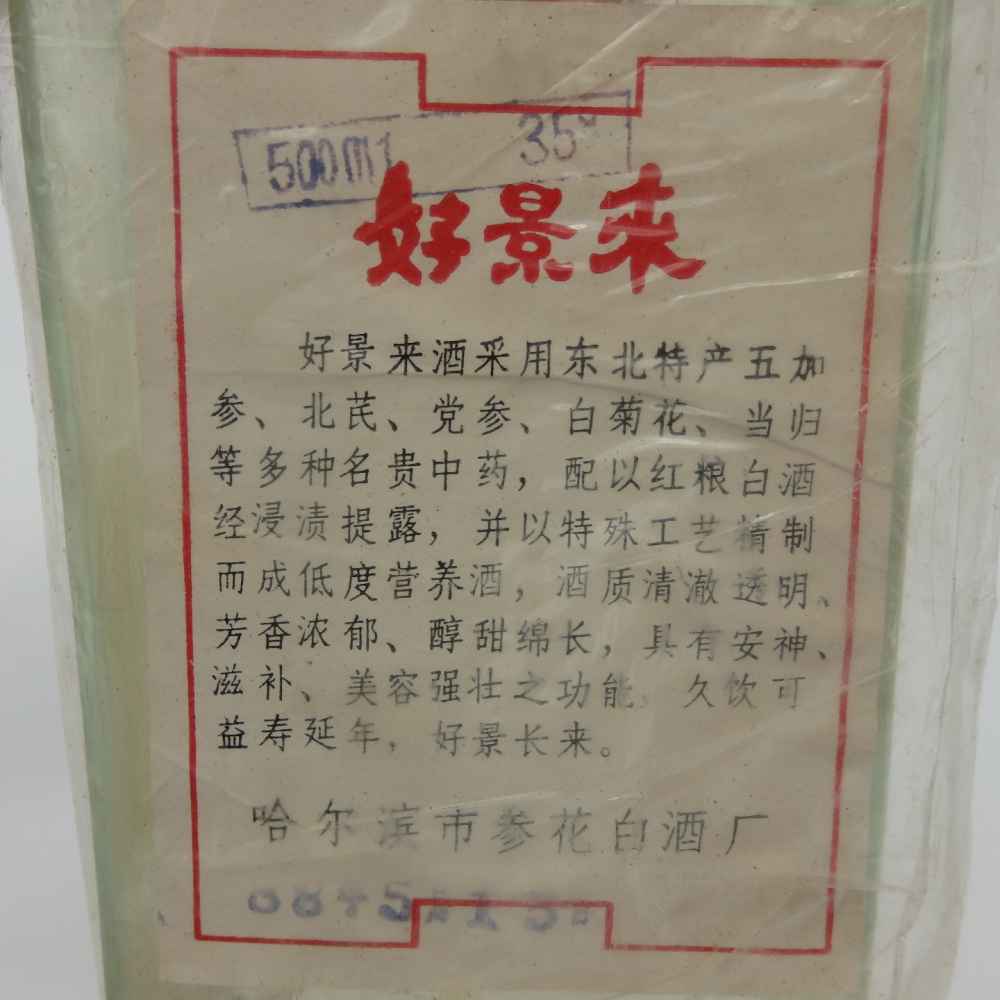 500ml 35°
好景来
好景来酒采用东北特产五加
参、北芪、党参、白菊花、当归
等多种名贵中药，配以红粮白酒
经浸渍提露，并以特殊工艺精制
而成低度营养酒，酒质清澈透明、
芳香浓郁、醇甜绵长，具有安神、
滋补、美容强壮之功能，久饮可
益寿延年，好景长来。
哈尔滨市参花白酒厂